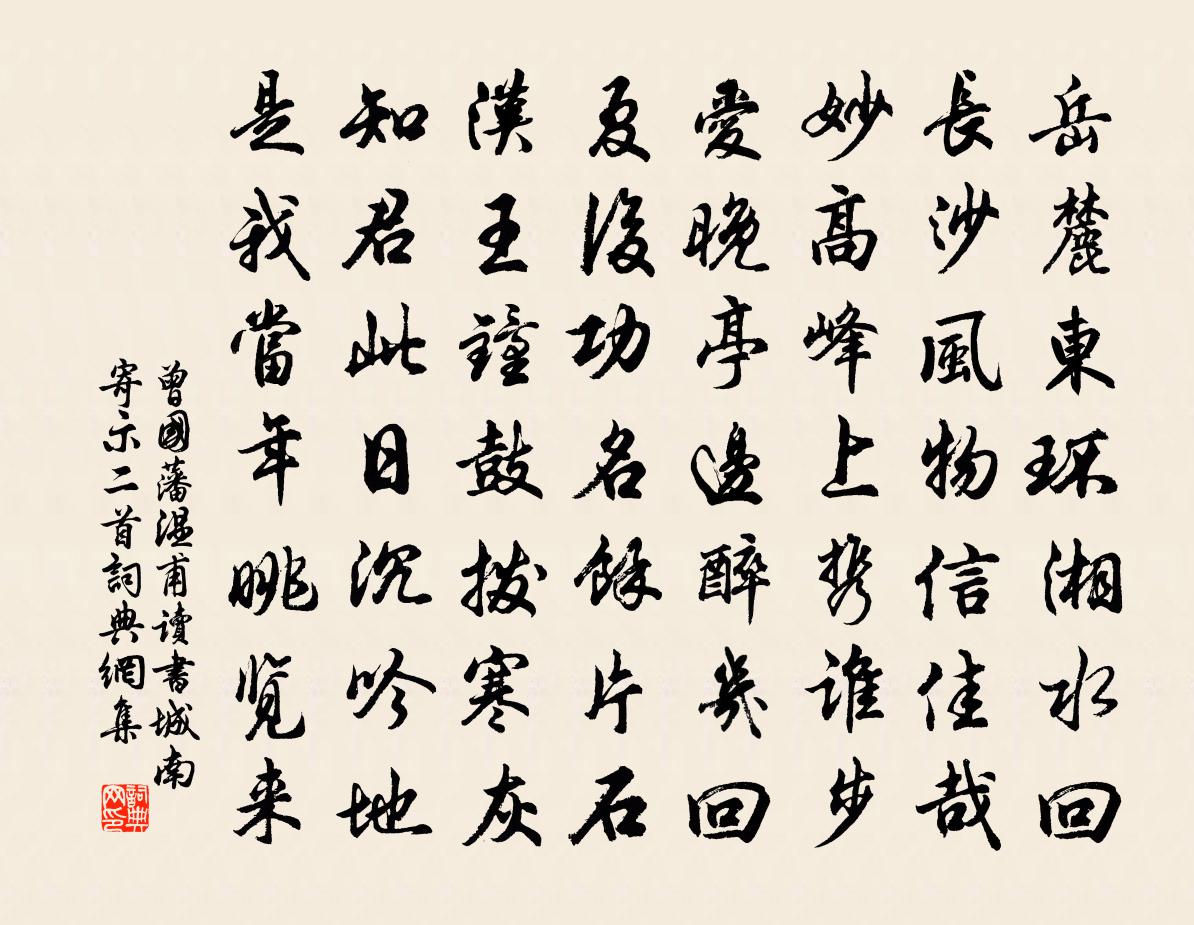 岳麓東環湘水回
長沙風物信佳哉
妙高峰上攜誰步
愛晚亭邊醉幾回
夏後功名餘片石
漢王鐘鼓撥寒灰
知君此日沉吟地
是我當年眺覽来
曾國藩溫甫讀書城南
寄示二首詞典網集
詞典网印